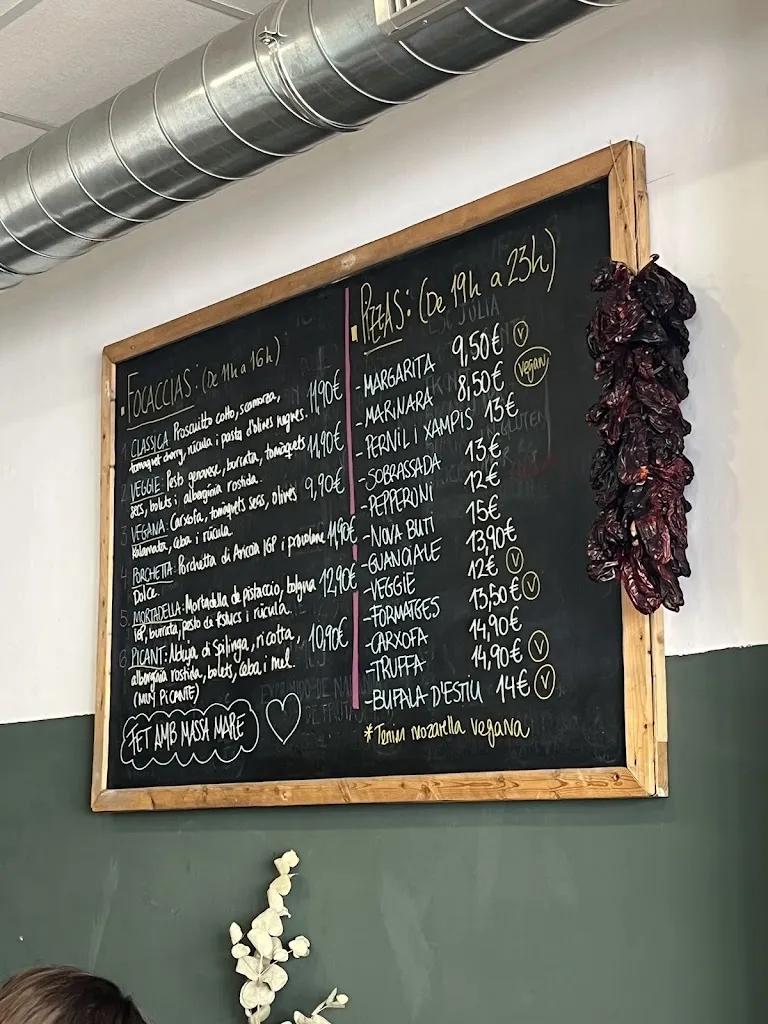 FOCACCIAS: (De 11h a 16h)
1 CLASSICA: Proscuitto cotto, scamorza, 11,90€
tomaquet cherry, rúcula i pasta d'olives negres.
2 VEGGIE: Pesto genovese, burrata, tomaquets 11,90€
secs, bolets i albergínia rostida.
3 VEGANA: Carxofa, tomaquets secs, olives 9,90€
Kalamata, ceba i rúcula.
4 PORCHETTA: Porchetta di Ariccia IGP i provolone 11,90€
Dolce.
5. MORTADELLA: Mortadella de pistaccio, bologna 12,90€
IGP, burrata, pesto di festucs i rúcula.
6 PICANT: Nduja di Spilinga, ricotta, 10,90€
albergínia rostida, bolets, ceba i mel.
(MUY PICANTE)
FET AMB MASSA MARE
PIZZAS: (De 19h a 23h)
-MARGARITA 9,50€ V
-MARINARA 8,50€ Vegan
-PERNIL I XAMPIS 13€
-SOBRASSADA 13€
-PEPPERONI 12€
-NOVA BUTI 15€
-GUANCIALE 13,90€
-VEGGIE 12€ V
-FORMATGES 13,50€ V
-CARXOFA 14,90€
-TRUFFA 14,90€ V
-BUFALA D'ESTIU 14€ V
*Tenim mozarella vegana